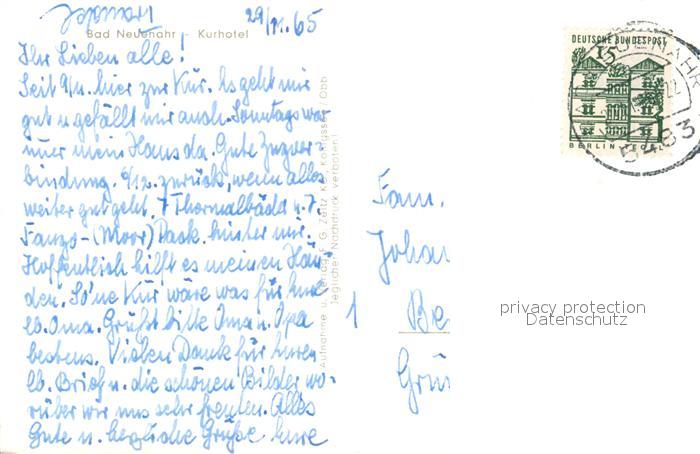 29/11.65
Bad Neuenahr - Kurhotel
Ihr Lieben alle!
Seit 9/11. hier zur Kur. Es geht mir
gut u. gefällt mir auch. Sonntags war
immer mein Hans da. Gute Zugver-
bindung. 9/12. zurück, wenn alles
weiter gut geht. 7 Thermalbäder u. 7
Fango-(Moor) Pack. hinter mir.
Hoffentlich hilft es meinen Hän-
den. So'ne Kur wäre was für Eure
lb. Oma. Grüßt bitte Oma u. Opa
bestens. Vielen Dank für Euren
lb. Brief u. die schönen Bilder wo-
rüber wir uns sehr freuten. Alles
Gute u. herzliche Grüße Eure
Irmgard
Aufnahme u. Verlag F. G. Zeitz KG., Königssee / Obb
Jeglicher Nachdruck verboten!
DEUTSCHE BUNDESPOST
15
BERLIN TEGEL
5483
Fam.
Johan
1
Be
Grün
privacy protection
Datenschutz